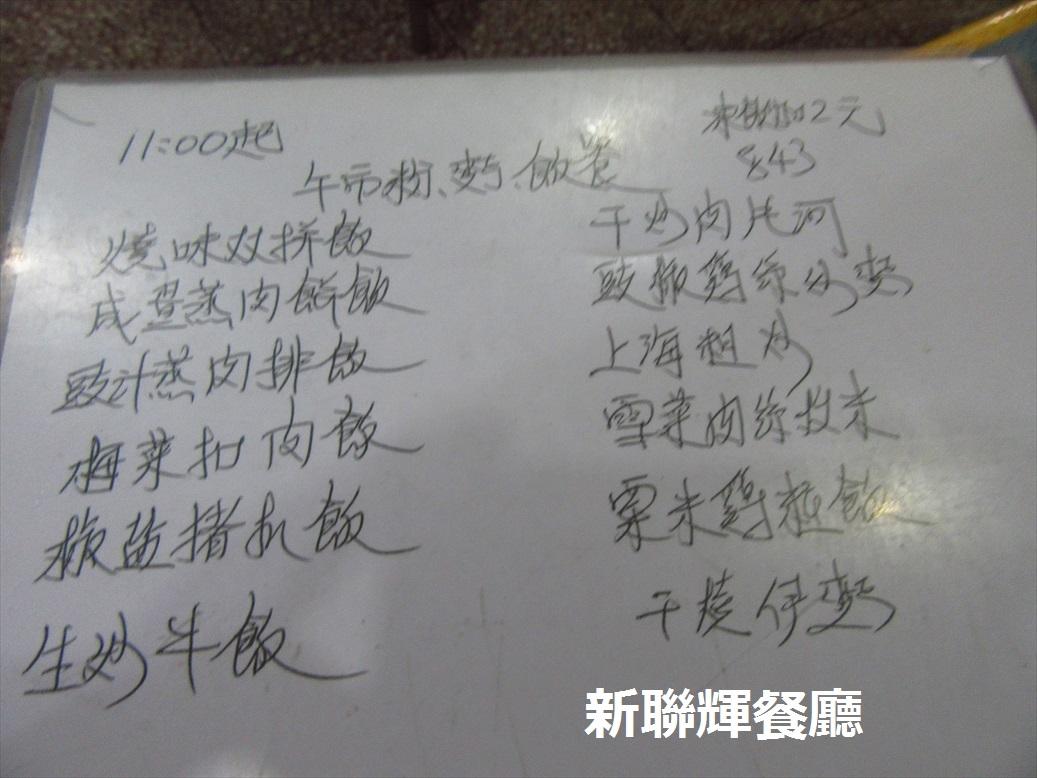 11:00起
午市粉、麵、飯餐
燒味双拼飯
咸蛋蒸肉餅飯
豉汁蒸肉排飯
梅菜扣肉飯
椒盐猪扒飯
生炒牛飯
2元
843
干炒肉片河
豉椒鷄絲炒麵
上海粗炒
雪菜肉絲炆米
粟米鷄粒飯
干燒伊麵
新聯輝餐廳